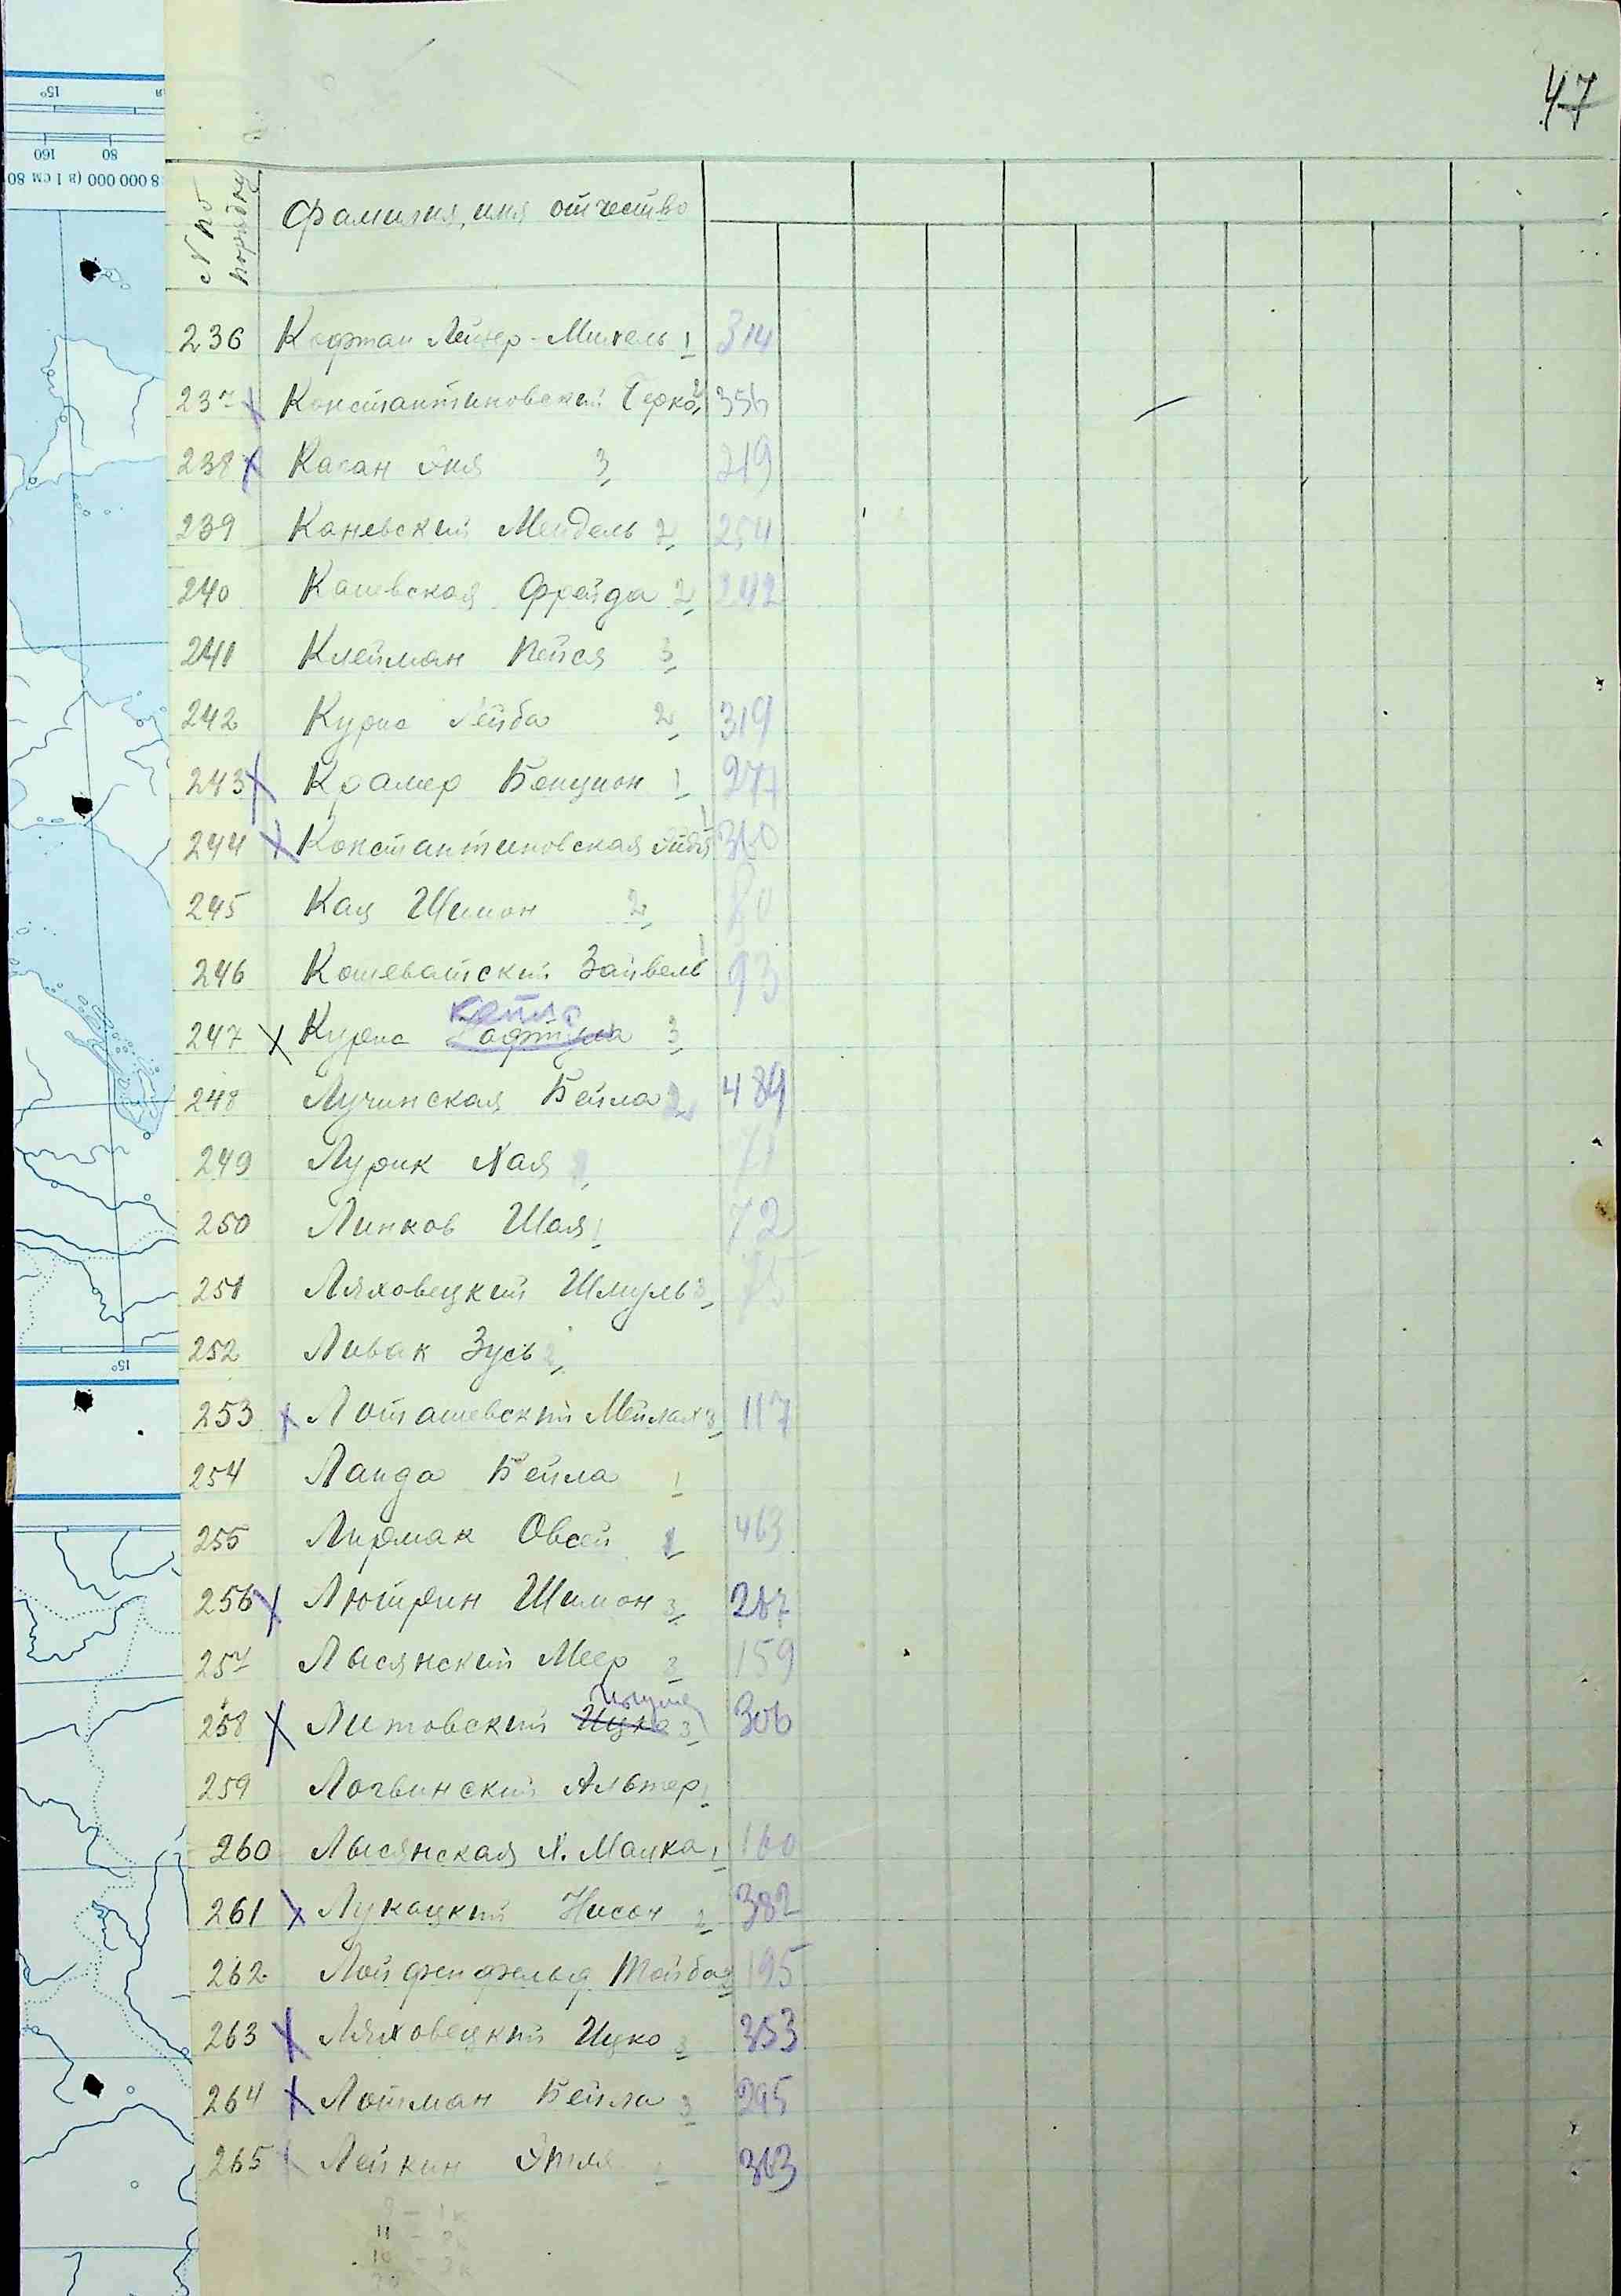 47
№ по порядку Фамилия, имя отчество
236 Кофман Лейзер-Михель 1 314
237 х Константиновский Берко 2 356
238 х Каган Эня 3 219
239 Каневский Мендель 2 254
240 Каневская Фрейда 2 242
241 Клейман Пейся 3
242 Курис Лейба 2 319
243 х Крамер Бенцион 1 277
244 х Константиновская 1 360
245 Кац Шимон 2 80
246 Кошеватский Зайвель 1 93
247 х Курис Кейла 3
248 Лучинская Бейла 2 484
249 Лурик Хая 71
250 Линков Шая 1 72
251 Ляховецкий Шмуль 3
252 Ливак Зусь
253 х Лоташевский Мейлах 3 117
254 Ланда Бейла 1
255 Лирмак Овсей 463
256 х Лютрин Шимон 3 267
257 Лысянский Меер 3 159
258 х Литовский Ицко 3 306
259 Логвинский Альтер 1
260 Лысянская Х. Малка 1 160
261 х Лукацкий Нисон 2 382
262 Лойфенфельд Тойба 195
263 х Ляховецкий Ицко 3 353
264 х Лойман Бейла 3 295
265 Лейкин Этля 363
15°
160 80
15°